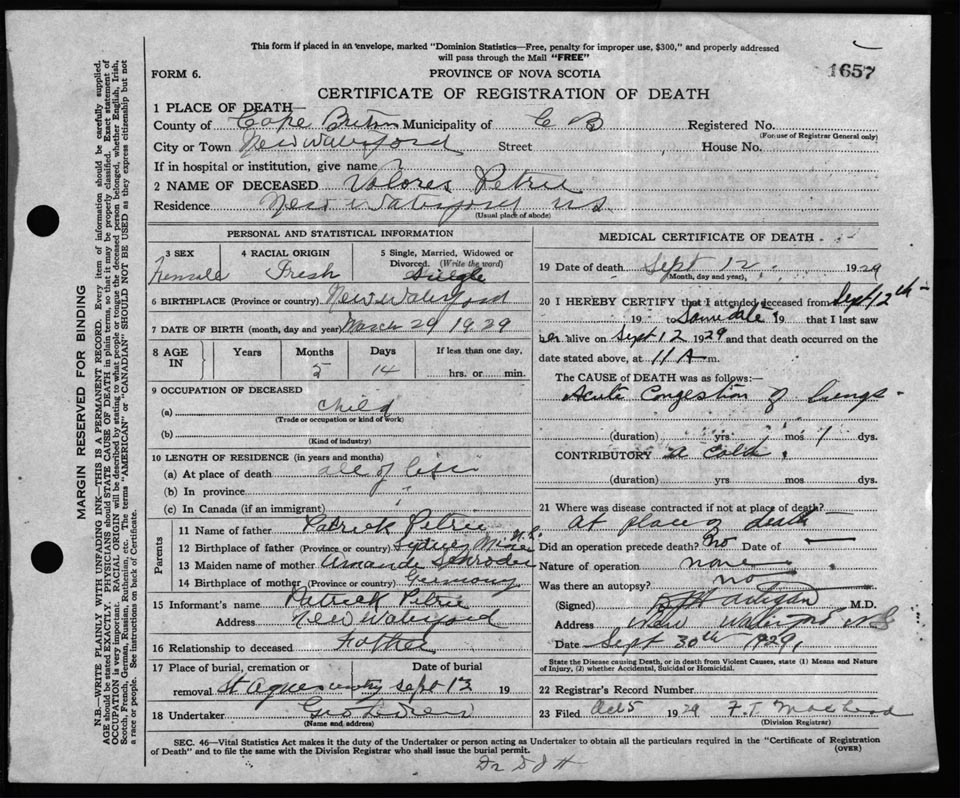 This form if placed in an envelope, marked "Dominion Statistics—Free, penalty for improper use, $300," and properly addressed
will pass through the Mail "FREE"
FORM 6.
PROVINCE OF NOVA SCOTIA
1657
CERTIFICATE OF REGISTRATION OF DEATH
1 PLACE OF DEATH—
County of Cape Breton Municipality of C B Registered No.
(For use of Registrar General only)
City or Town New Waterford Street House No.
If in hospital or institution, give name
2 NAME OF DECEASED Petrie
Residence New Waterford N.S.
(Usual place of abode)
PERSONAL AND STATISTICAL INFORMATION
3 SEX
4 RACIAL ORIGIN
5 Single, Married, Widowed or
Divorced. (Write the word)
Female
Single
6 BIRTHPLACE (Province or country) New Waterford
7 DATE OF BIRTH (month, day and year) March 29 1929
8 AGE IN
Years
Months
Days
If less than one day,
5
14
hrs. or min.
9 OCCUPATION OF DECEASED
(a) child
(Trade or occupation or kind of work)
(b)
(Kind of industry)
10 LENGTH OF RESIDENCE (in years and months)
(a) At place of death all of life
(b) In province
(c) In Canada (if an immigrant)
Parents
11 Name of father Patrick Petrie
12 Birthplace of father (Province or country) Sydney Mines N.S.
13 Maiden name of mother
14 Birthplace of mother (Province or country) Germany
15 Informant's name Patrick Petrie
Address New Waterford
16 Relationship to deceased Father
17 Place of burial, cremation or
removal St Agnes
Date of burial
Sept 13 19
18 Undertaker
(Name and address)
MEDICAL CERTIFICATE OF DEATH
19 Date of death Sept 12 1929
(Month, day and year)
20 I HEREBY CERTIFY that I attended deceased from Sept 12th -
19 to Same date 19 that I last saw
her alive on Sept 12 1929 and that death occurred on the
date stated above, at 11 A m.
The CAUSE of DEATH was as follows:—
Acute Congestion of Lungs -
(duration) yrs mos 1 dys.
CONTRIBUTORY a Cold.
(duration) yrs mos dys.
21 Where was disease contracted if not at place of death?
At place of death
Did an operation precede death? No Date of —
Nature of operation none
Was there an autopsy? no
(Signed) M.D.
Address New Waterford N S
Date Sept 30th 1929
State the Disease causing Death, or in death from Violent Causes, state (1) Means and Nature
of Injury, (2) whether Accidental, Suicidal or Homicidal.
22 Registrar's Record Number
23 Filed Oct 5 1929
(Division Registrar)
SEC. 46—Vital Statistics Act makes it the duty of the Undertaker or person acting as Undertaker to obtain all the particulars required in the "Certificate of Registration
of Death" and to file the same with the Division Registrar who shall issue the burial permit.
(OVER)
MARGIN RESERVED FOR BINDING
N.B.—WRITE PLAINLY WITH UNFADING INK—THIS IS A PERMANENT RECORD. Every item of information should be carefully supplied.
AGE should be stated EXACTLY. PHYSICIANS should STATE CAUSE OF DEATH in plain terms, so that it may be properly classified. Exact statement of
OCCUPATION is very important. RACIAL ORIGIN will be described by stating to what people or tongue the deceased person belonged, whether English, Irish,
Scotch, French, German, Russian, Ruthenian, etc. The terms "AMERICAN" or "CANADIAN" SHOULD NOT BE USED as they express citizenship but not
a race or people. See instructions on back of Certificate.